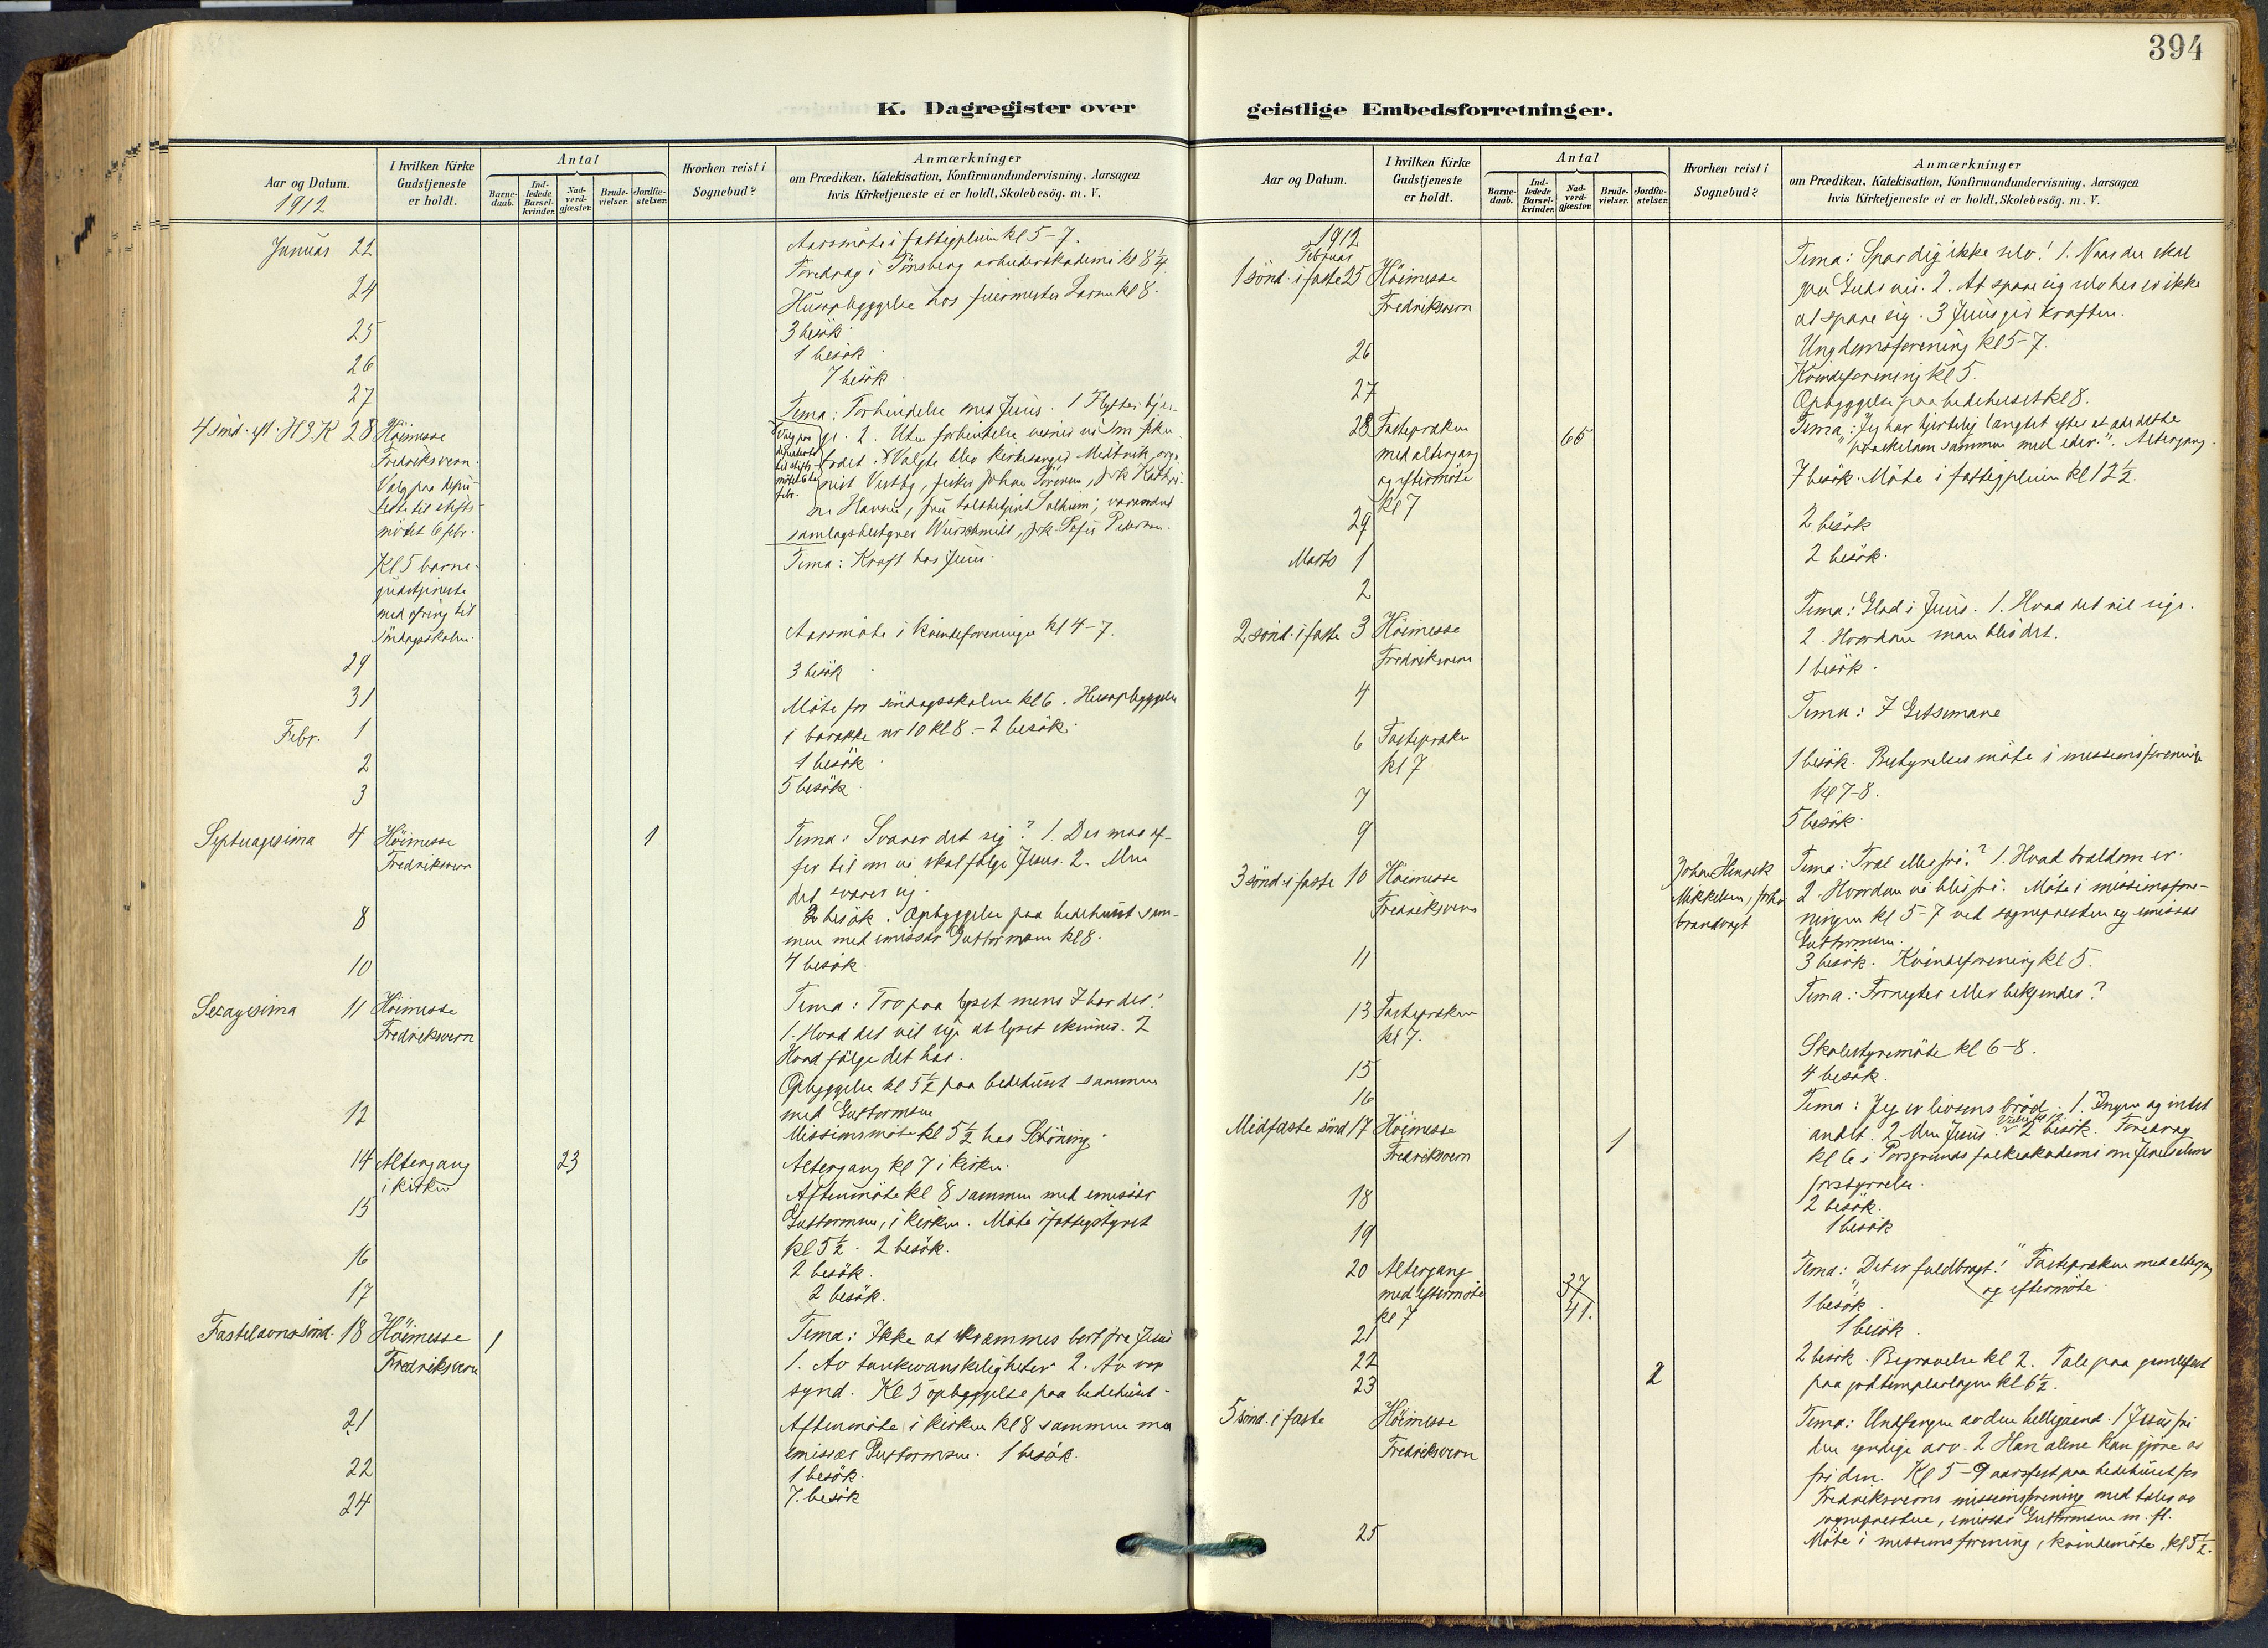 394
K. Dagregister over
Aar og Datum.
1912
I hvilken Kirke
Gudstjeneste
er holdt.
Antal
Barne-
daab.
Ind-
ledede
Barsel-
kvinder.
Nad-
verd-
gjæster.
Brude-
vielser.
Jordfæ-
stelser.
Hvorhen reist i
Sognebud?
Anmærkninger
om Prædiken, Katekisation, Konfirmandundervisning, Aarsagen
hvis Kirketjeneste ei er holdt, Skolebesög. m. V.
Januar 22 Aarsmöte i fattigpleien kl 5-7.
Foredrag i Tönsberg arbeiderakademi kl 8 1/4.
24 Husopbyggelse hos kl 8.
25 3 besök
26 1 besök
27 7 besök
4 sönd. eft. H3K 28 Höimesse Tema: Forbindelse med Jesus. 1
Fredriksvern. 2. Uten forbindelse
Valg paa depu- Valgte blev kirkesanger Midtvik, orga-
terte til stifts- nist Vestby, Johan Sörensen, frk
mötet 6 febr. fru
samlagsbestyrer Würschmidt, frk. Sofie Pedersen.
Kl 5 barne- Tema: Kraft hos Jesus.
gudstjeneste
med ofring til
söndagsskolen.
29 Aarsmöte i kvindeforeningen kl 4-7.
31 3 besök
Febr. 1 Möte for söndagsskolen kl 6. Husopbyggelse
i barakke nr 10 kl 8. - 2 besök.
2 1 besök
3 5 besök
Septuagesima 4 Höimesse 1 Tema: Svarer det sig? 1. Der maa of-
Fredriksvern fer til om vi skal fölge Jesus. 2. Men
det svarer sig.
8 2 besök. Opbyggelse paa bedehuset sam-
men med emissær Guttormsen kl 8.
10 4 besök.
Sexagesima 11 Höimesse Tema: Tro paa lyset mens I har det!
Fredriksvern 1. Hvad det vil sige at lyset skinner. 2
Hvad fölge det har.
Opbyggelse kl 5 1/2 paa bedehuset sammen
med Guttormsen
12 Missionsmöte kl 5 1/2 hos Schöning.
14 Altergang 23 Altergang kl 7 i kirken.
i kirken
15 Aftenmöte kl 8 sammen med emissær
Guttormsen, i kirken. Möte i fattigstyret
kl 5 1/2. 2 besök.
16 2 besök.
17 2 besök.
Fastelavnssönd. 18 Höimesse 1 Tema: Ikke at skræmmes bort fra Jesus
Fredriksvern 1. Av tankevanskeligheter 2. Av vor
synd. Kl 5 opbyggelse paa bedehuset.
21 Aftenmöte i kirken kl 8 sammen med
emissær Guttormsen. 1 besök.
22 1 besök.
24 7 besök
geistlige Embedsforretninger.
Aar og Datum.
I hvilken Kirke
Gudstjeneste
er holdt.
Antal
Barne-
daab.
Ind-
ledede
Barsel-
kvinder.
Nad-
verd-
gjæster.
Brude-
vielser.
Jordfæ-
stelser.
Hvorhen reist i
Sognebud?
Anmærkninger
om Prædiken, Katekisation, Konfirmandundervisning, Aarsagen
hvis Kirketjeneste ei er holdt, Skolebesög. m. V.
1912
Februar
1 sönd. i faste 25 Höimesse Tema: Spar dig ikke selv! 1. Naar du skal
Fredriksvern gaa Guds vei. 2. At spare sig selv her er ikke
at spare sig. 3 Jesus gir kraften.
26 Ungdomsforening kl 5-7.
27 Kvindeforening kl 5.
Opbyggelse paa bedehuset kl 8.
28 Fastepræken 65 Tema: "Jeg har hjertelig længtet efter at æte dette
med altergang paaskelam sammen med eder." Altergang.
og eftermöte 7 besök. Möte i fattigpleien kl 12 1/2.
kl 7
29 2 besök
Marts 1 2 besök.
2
2 sönd. i faste 3 Höimesse Tema: Glad i Jesus. 1. Hvad det vil sige.
Fredriksvern 2. Hvordan man blir det.
4 1 besök.
6 Fastepræken Tema: I Getsemane
kl 7
7 1 besök. Bestyrelsesmöte i missionsforening
kl 7-8.
9 5 besök.
3 sönd. i faste 10 Höimesse Johan Henrik Tema: Træl eller fri? 1. Hvad trældom er.
Fredriksvern Mikkelsen, 2. Hvordan vi blir fri. Möte i missionsfore-
brandvagt ningen kl 5-7 ved sognepresten og emissær
Guttormsen.
11 3 besök. Kvindeforening kl 5.
13 Fastepræken Tema: Fornegter eller bekjender?
kl 7.
15 Skolestyremöte kl 6-8.
16 4 besök.
Midfaste sönd 17 Höimesse 1 Tema: Jeg er livsens bröd. 1. Ingen og intet
Fredriksvern andet. 2. Men Jesus. 2 besök. Foredrag
kl 6 i Porsgrunds folkeakademi om Jerusalems
forstyrrelse.
18 2 besök.
19 1 besök
20 Altergang 37 Tema: "Det er fuldbragt!" Fastepræken med altergang
med eftermöte 41. og eftermöte
kl 7
21 1 besök.
22 1 besök.
23 2 2 besök. Begravelse kl 2. Tale paa gamlefest
paa godtemplarlogen kl 6 1/2.
5 sönd. i faste Höimesse Tema: Undfangen av den helligaand. 1 Jesus fri
Fredriksvern den syndige arv. 2 Han alene kan gjöre os
fri den. Kl 5-9 aarsfest paa bedehuset for
Fredriksverns missionsforening med taler av
sognepresten, emissær Guttormsen m. fl.
25 Möte i missionsforening, kvindemöte, kl 5 1/2.